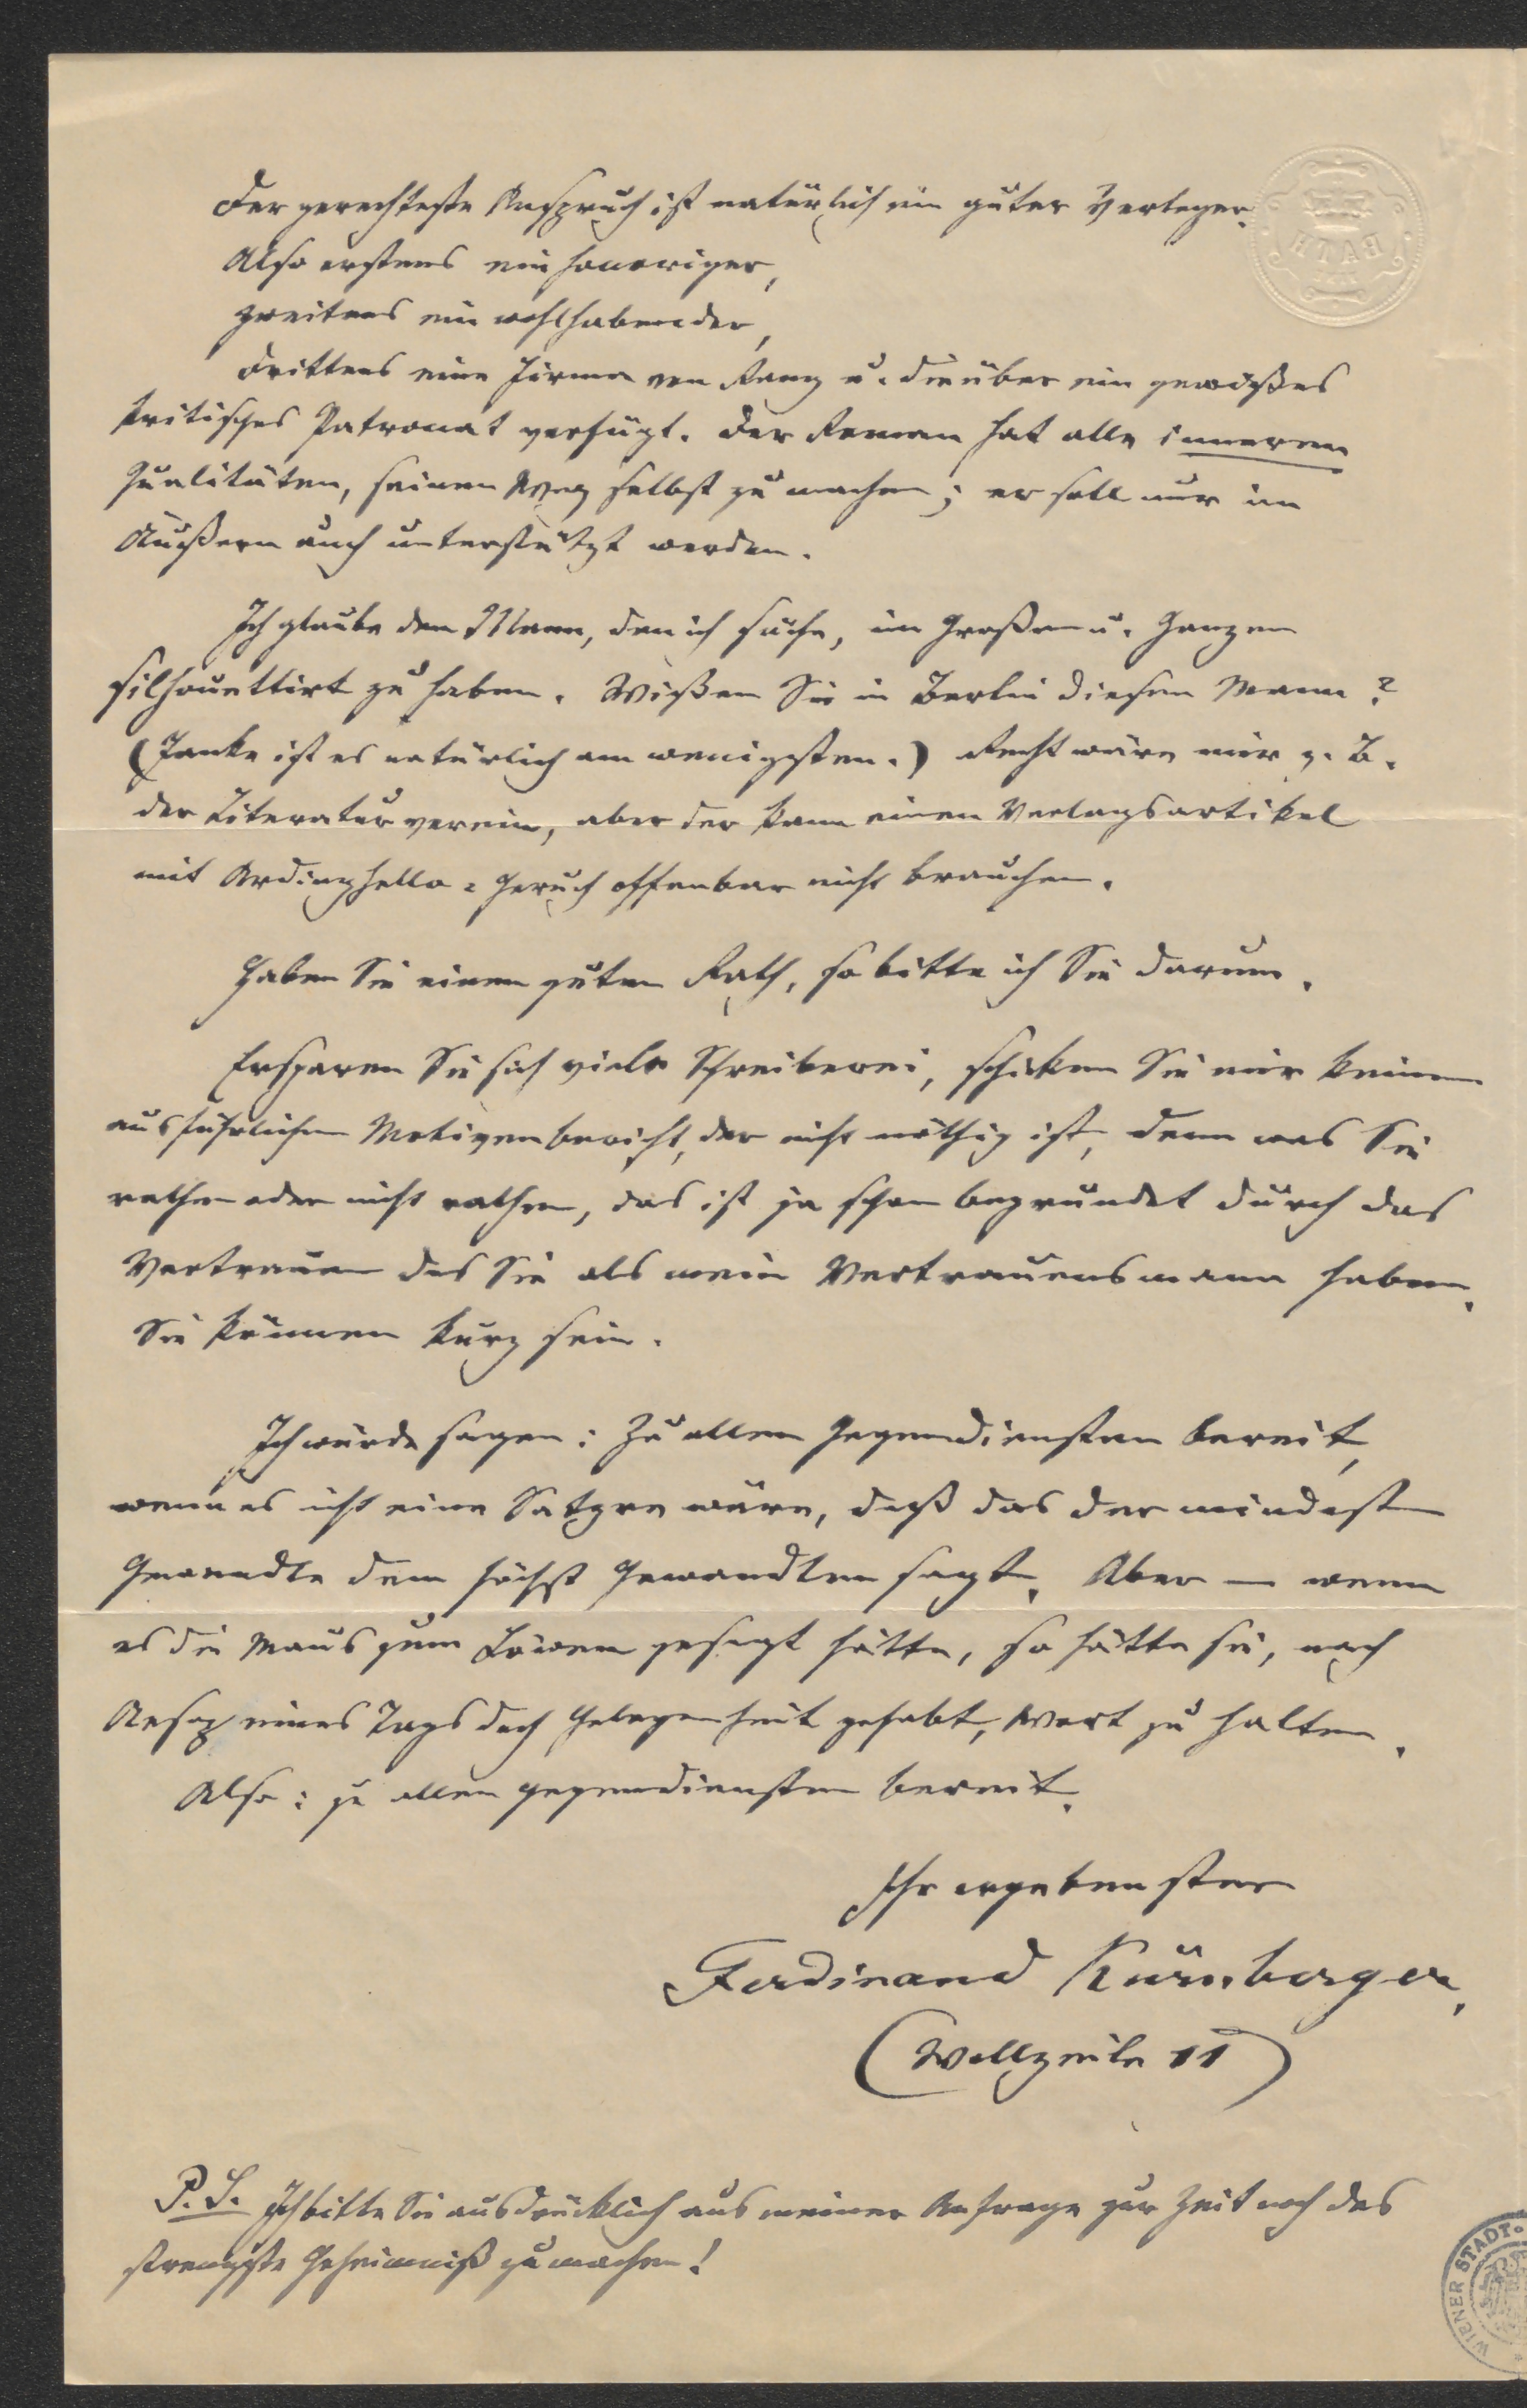 Der gerechteste Anspruch ist natürlich ein guter Verleger.
Also erstens ein honoriger,
zweitens ein wohlhabender,
drittens eine Firma von Rang u. die über ein gewißes
kritisches Patronat verfügt. Der Roman hat alle inneren
Qualitäten, seinen Weg selbst zu machen; er soll nur im
Äußern auch unterstützt werden.
Ich glaube den Mann, den ich suche, im Großen u. Ganzen
silhouettirt zu haben. Wißen Sie in Berlin diesen Mann?
(Janke ist es natürlich am wenigsten.) Recht wäre mir z. B.
der Literaturverein, aber der kann einen Verlagsartikel
mit Ardinghello-Geruch offenbar nicht brauchen.
Haben Sie einen guten Rath, so bitte ich Sie darum.
Ersparen Sie sich viele Schreiberei, schicken Sie mir keinen
ausführlichen Motivenbericht, der nicht nöthig ist, denn was Sie
rathen oder nicht rathen, das ist ja schon begründet durch das
Vertrauen das Sie als mein Vertrauensmann haben.
Sie können kurz sein.
Ich würde sagen: Zu allen Gegendiensten bereit,
wenn es nicht eine Satyre wäre, daß das der mindest
Gewandte dem höchst Gewandten sagt. Aber — wenn
es die Maus zum Löwen gesagt hätte, so hätte sie, nach
Aesop eines Tags doch Gelegenheit gehabt, Wort zu halten.
Also: zu allen Gegendiensten bereit.
Ihr ergebenster
Ferdinand Kürnberger.
(Wollzeile 11)
P.S. Ich bitte Sie ausdrücklich aus meiner Anfrage zur Zeit noch das
strengste Geheimniß zu machen!
BATH
WIENER STADT-